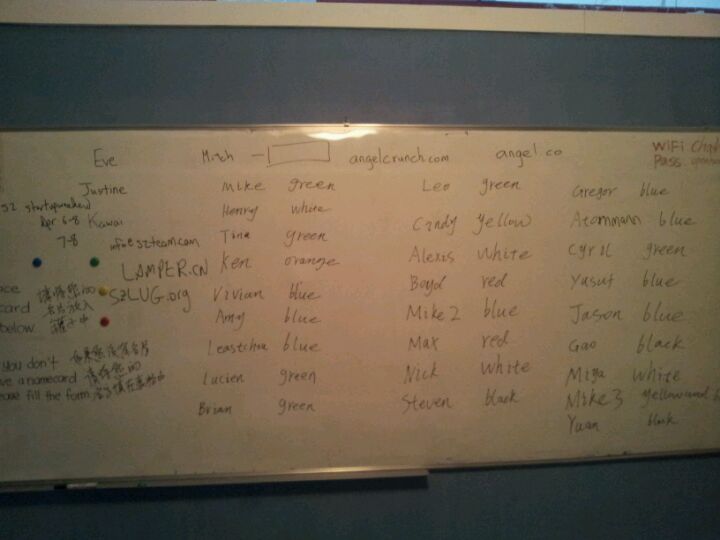 Eve
Justine
sz startup weekend
Apr 6-8 Kawai
7-8
info@szteam.com
LAMPER.CN
SZLUG.org
ace 请将您的
card 名片放入
below. 罐中
you don't 如果您没有名片
ve a namecard 请将您的
ase fill the form.
Mitch —
Mike green
Henry white
Tina green
Ken orange
Vivian blue
Amy blue
Leastchua blue
Lucien green
Brian green
angelcrunch.com
angel.co
Leo green
Cindy yellow
Alexis white
Boyd red
Mike 2 blue
Max red
Nick white
Steven black
WiFi
Pass.
Gregor blue
Atommann blue
Cyril green
Yusuf blue
Jason blue
Gao black
Miya white
Mike 3 yellow and b
Yuan black